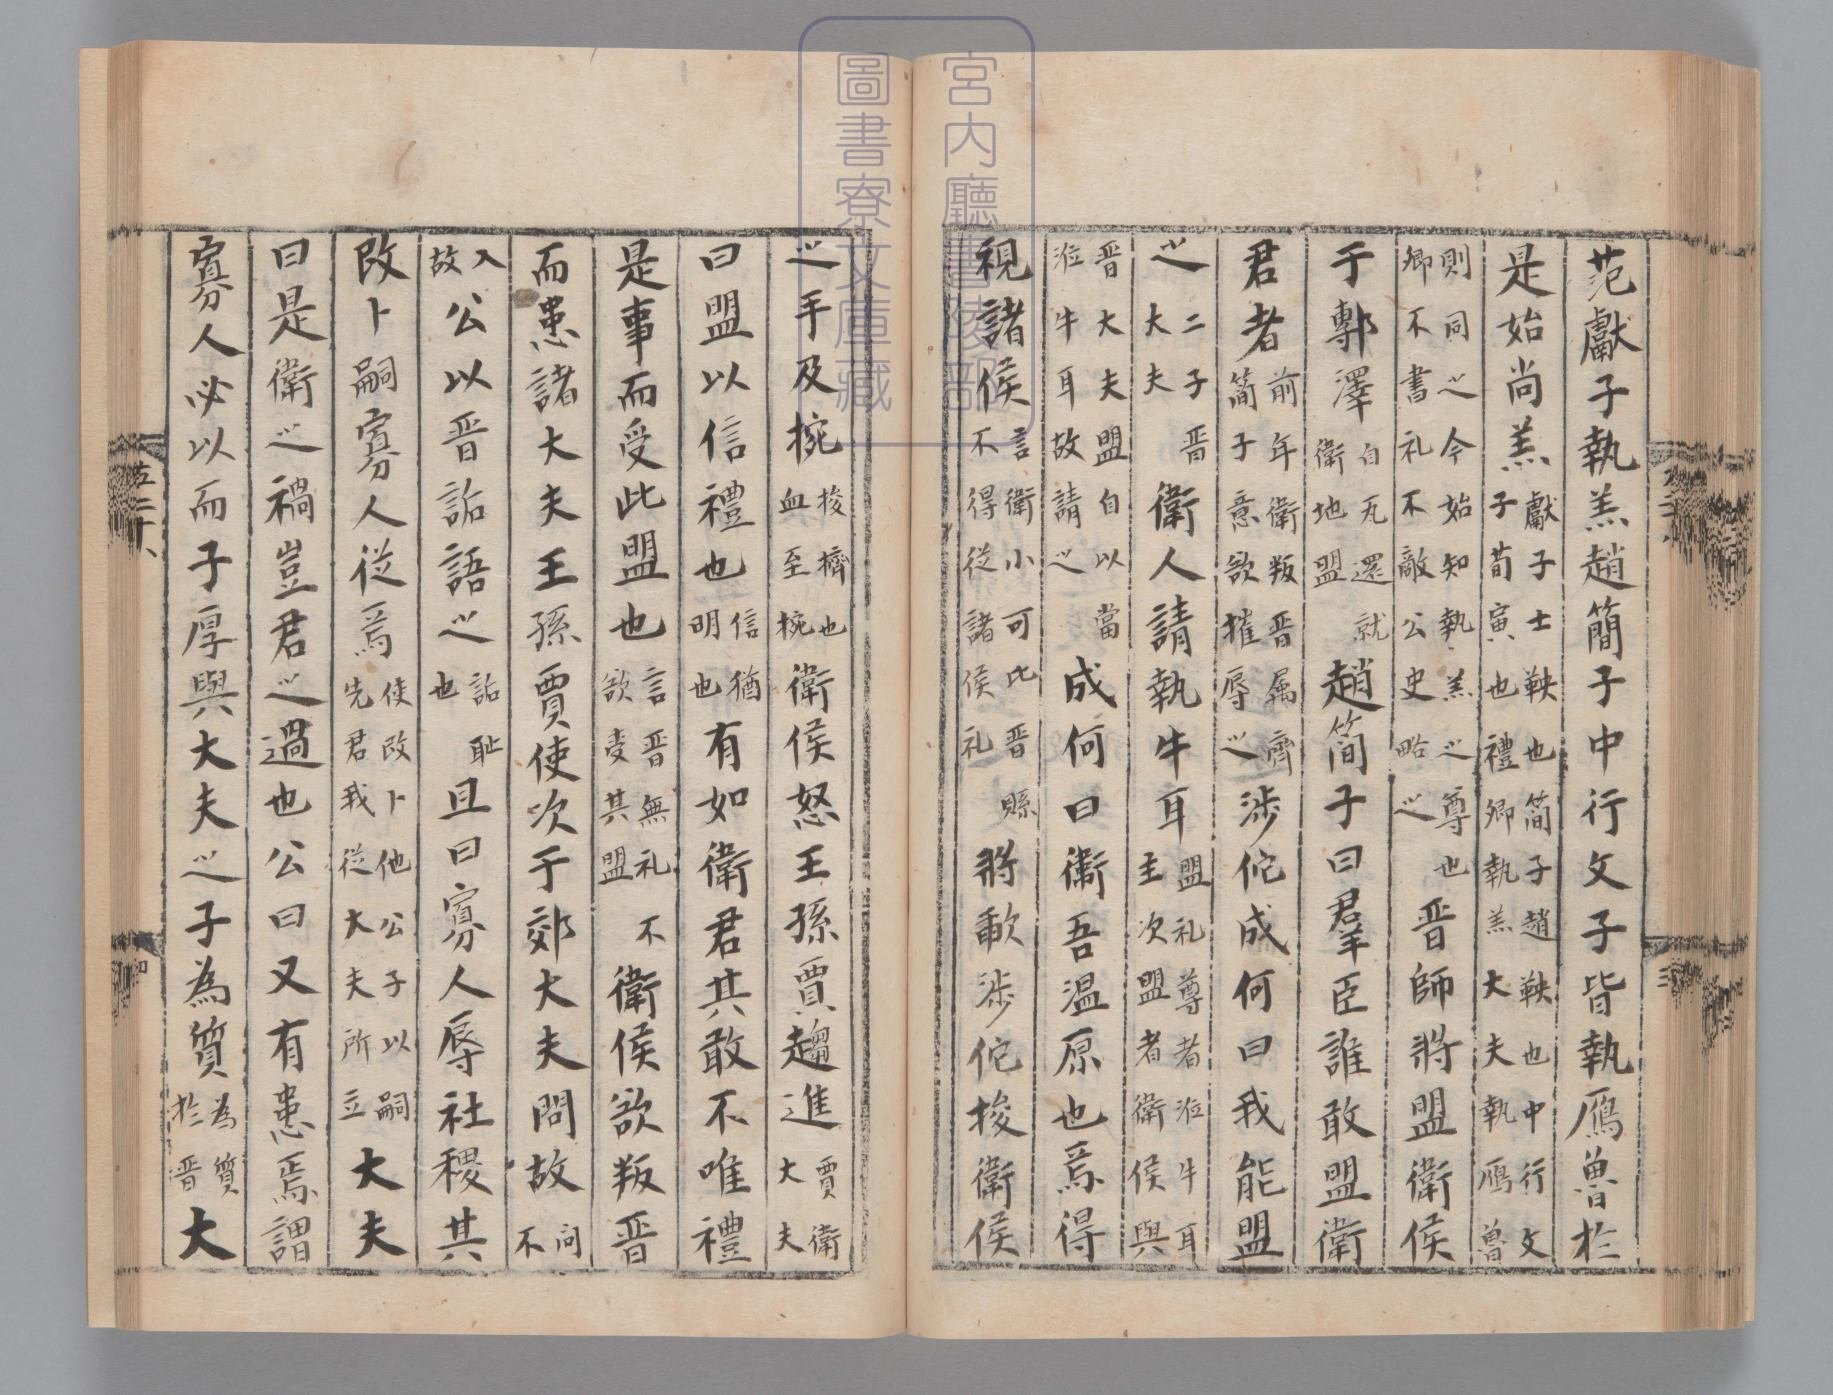 范獻子執羔趙簡子中行文子皆執鴈魯於
是始尚羔獻子士鞅也簡子趙鞅也中行文子荀寅也禮卿執羔大夫執鴈魯
則同之今始知執羔之尊也卿不書礼不敵公史略之晋師將盟衛侯
于鄟澤自瓦還就衛地盟趙簡子曰羣臣誰敢盟衛
君者前年衛叛晋属齊簡子意欲摧辱之涉佗成何曰我能盟
之二子晋大夫衛人請執牛耳盟礼尊者涖牛耳主次盟者衛侯與
晋大夫盟自以當涖牛耳故請之成何曰衛吾温原也焉得
視諸侯言衛小可比晋縣不得從諸侯礼將歃涉佗捘衛侯
之手及捥捘擠也血至捥衛侯怒王孫賈趨進賈衛大夫
曰盟以信禮也信猶明也有如衛君其敢不唯禮
是事而受此盟也言晋無礼不欲受其盟衛侯欲叛晋
而患諸大夫王孫賈使次于郊大夫問故問不
入故公以晋詬語之詬耻也且曰寡人辱社稷其
改卜嗣寡人從焉使改卜他公子以嗣先君我從大夫所立大夫
曰是衛之禍豈君之過也公曰又有患焉謂
寡人必以而子厚與大夫之子為質為質於晋大
宮内廳書陵部
圖書寮文庫藏